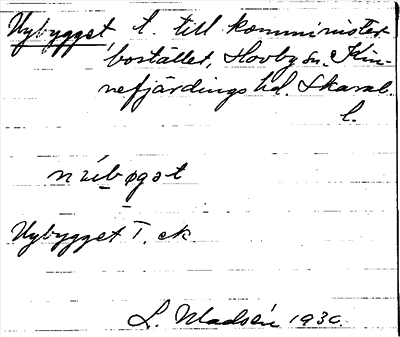 Nybygget, t. till komminister-
bostället, Hovby sn. Kin-
nefjärdings hd. Skarab.
l.
nỳbøgət
Nybygget T. ek
L. Madsén 1930.